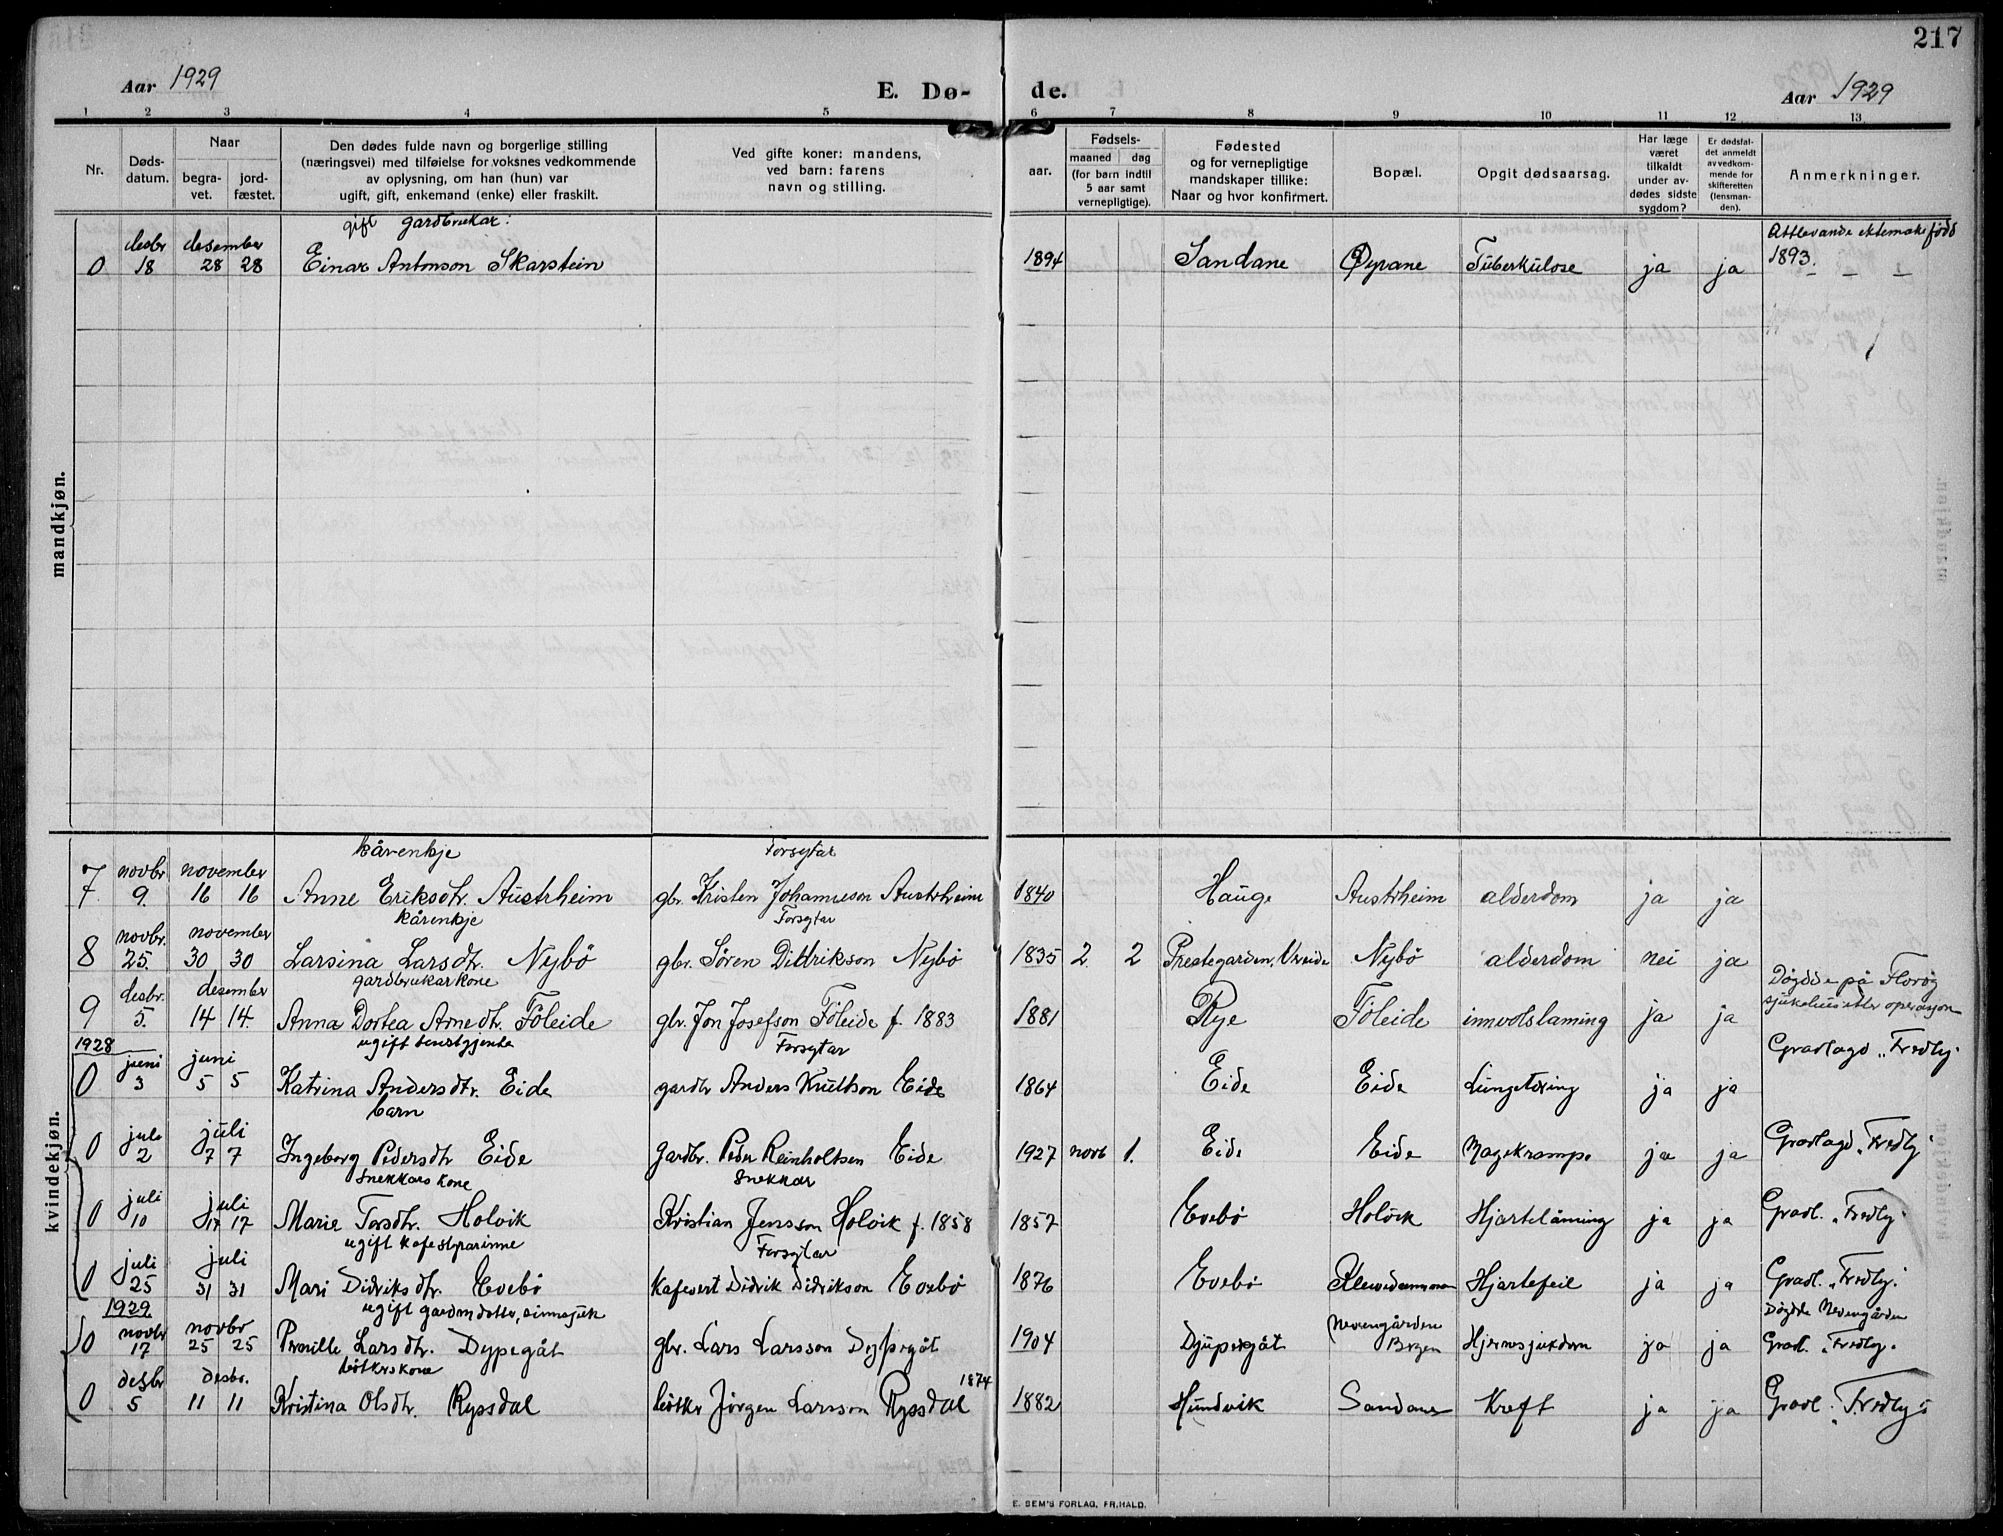 217
Aar 1929 E. Dø- de. Aar 1929
1 2 3 4 5 6 7 8 9 10 11 12 13
Nr.
Døds-
datum.
Naar
begra-
vet.
jord-
fæstet.
Den dødes fulde navn og borgerlige stilling
(næringsvei) med tilføielse for voksnes vedkommende
av oplysning, om han (hun) var
ugift, gift, enkemand (enke) eller fraskilt.
Ved gifte koner: mandens,
ved barn: farens
navn og stilling.
Fødsels-
aar.
maaned dag
(for barn indtil
5 aar samt
vernepligtige).
Fødested
og for vernepligtige
mandskaper tillike:
Naar og hvor konfirmert.
Bopæl.
Opgit dødsaarsag.
Har læge
været
tilkaldt
under av-
dødes sidste
sygdom?
Er dødsfal-
det anmeldt
av vedkom-
mende for
skifteretten
(lensman-
den).
Anmerkninger.
mandkjøn.
gift gardbrukar:
desbr desember Attlevande ektemake född
0 18 28 28 Einar Antonson Skarstein 1894 Sandane Øyrane Tüberkülose ja ja 1893.
kvindekjøn.
kårenkje Forsytar
novbr november
7 9. 16 16 Anne Eriksdtr. Austrheim gbr. Kristen Johanneson Austrheim 1840 Hauge Austrheim alderdom ja ja
kårenkje Forsytar
novbr. november
8 25. 30 30 Larsina Larsdtr. Nybö gbr. Sören Didrikson Nybö 1835 2 2 Prestegarden, Vreide Nybö alderdom nei ja
gardbrukarkone
desbr. desember Döydde på Florö
9 5. 14 14. Anna Dortea Arnedtr. Föleide gbr. Jon Josefson Föleide f. 1883 1881 Rye Föleide innvolslaming ja ja sjukehus etter operasjon
1928 ugift tenestgjenta Forsytar
juni juni Gravlagd „Fredly"
0 3 5 5 Katrina Andersdtr. Eide gardbr Anders Knutson Eide 1864 Eide Eide Lungetæring ja ja
barn
juli juli
0 2 7 7 Ingeborg Pedersdtr Eide Gardbr. Peder Reinholtsen Eide 1927 novb 1. Eide Eide Magekrampe ja ja Gravlagd „Fredly"
Snekkars kone Snekkar
juli juli
0 10 17 17 Marie Torsdtr. Holvik Kristian Jensson Holvik f. 1858 1857 Evebö Holvik Hjartelåming ja ja Gravl. „Fredly"
ugift kafestyrarinne Forsytar
juli juli
0 25 31 31 Mari Didriksdtr. Evebö Kafevert Didrik Didrikson Evebö 1876 Evebö Hjartefeil ja ja Gravl. „Fredly".
1929 ugift gardm dotter, sinnsjuk Döydde Nevengården
novbr novbr Nevengården
0 17 25 25 Pernille Larsdtr. Dypegåt gbr. Lars Larsson Dypegåt 1904 Djupegåt Bergen Hjernesjukdom ja ja Gravl. „Fredly".
bötkerskone
desbr desbr. 1874
0 5 11 11 Kristina Olsdtr. Ryssdal bötker Jörgen Larsson Ryssdal 1882 Hundvik Sandane Kreft ja ja Gravl. „Fredly"
E. SEM'S FORLAG, FR.HALD.